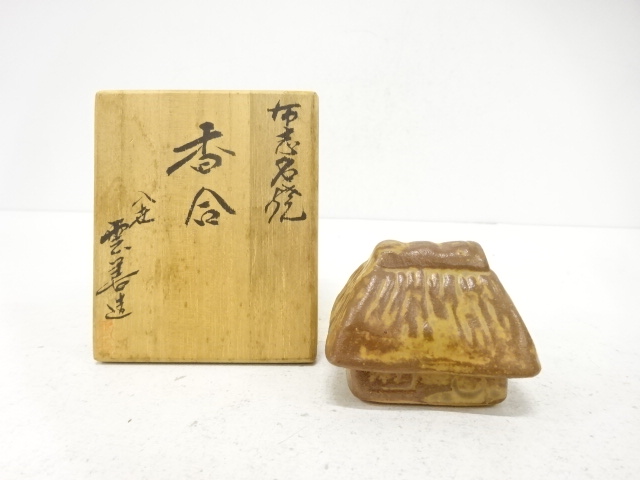 布志名焼
香合
八世
雲善造